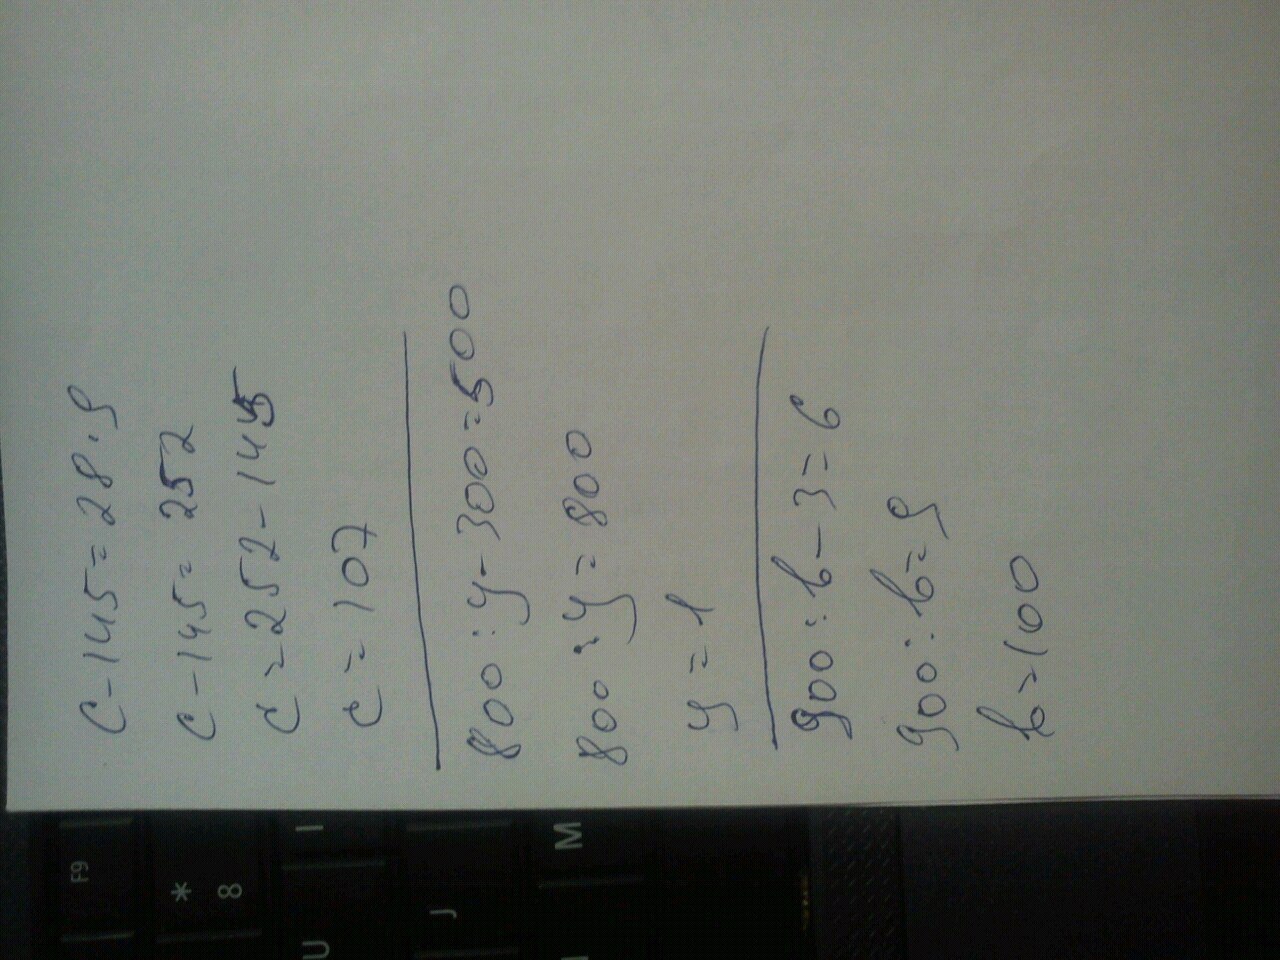 c-145=28·9
c-145=252
c=252-145
c=107
800:y-300=500
800:y=800
y=1
900:b-3=6
900:b=9
b=100
F9
*
8
U
I
J
M